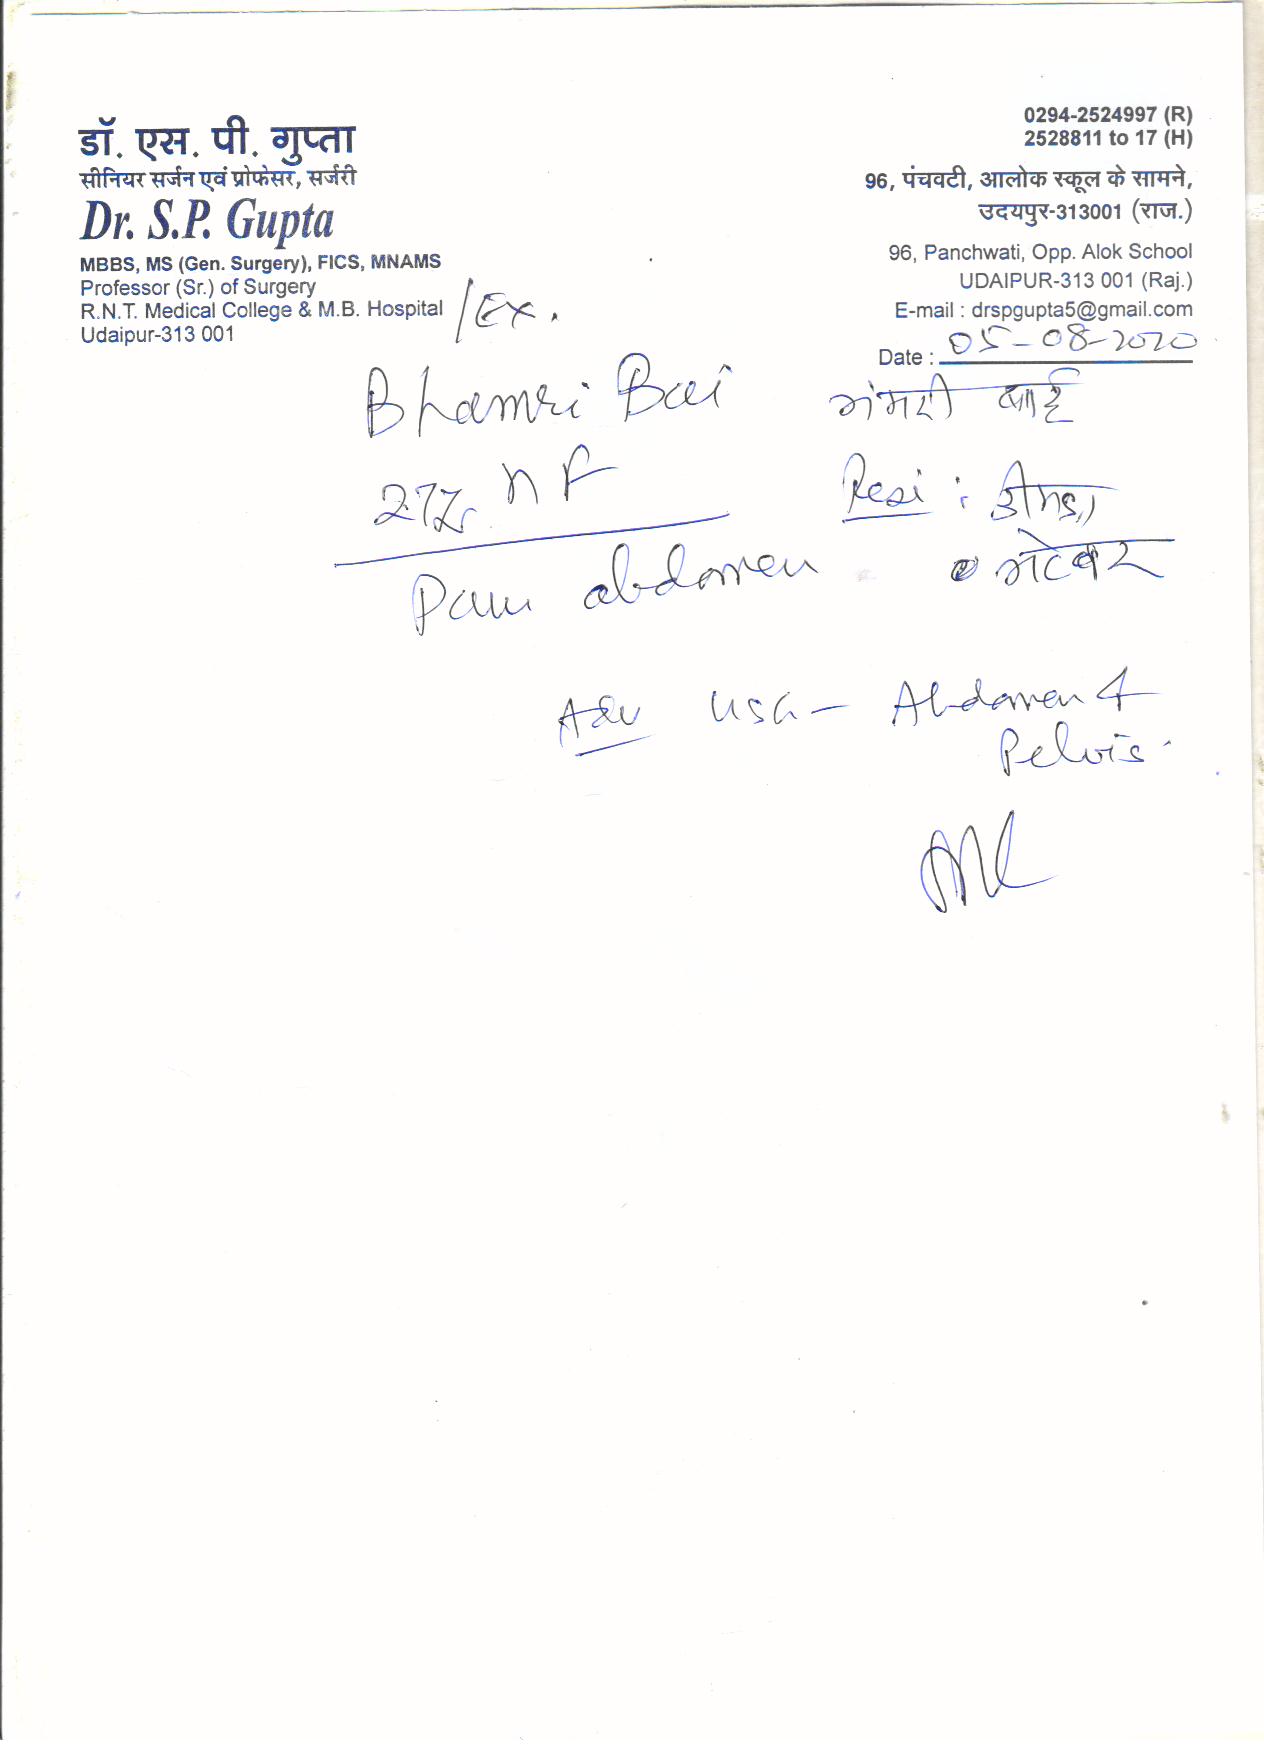 डॉ. एस. पी. गुप्ता
सीनियर सर्जन एवं प्रोफेसर, सर्जरी
Dr. S.P. Gupta
MBBS, MS (Gen. Surgery), FICS, MNAMS
Professor (Sr.) of Surgery
R.N.T. Medical College & M.B. Hospital /Ex.
Udaipur-313 001
0294-2524997 (R)
2528811 to 17 (H)
96, पंचवटी, आलोक स्कूल के सामने,
उदयपुर-313001 (राज.)
96, Panchwati, Opp. Alok School
UDAIPUR-313 001 (Raj.)
E-mail : drspgupta5@gmail.com
Date : 05-08-2020
Bhamri Bai भंमरी बाई
F Resi :
Pain abdomen
Adv USG - Abdomen &
Pelvis.